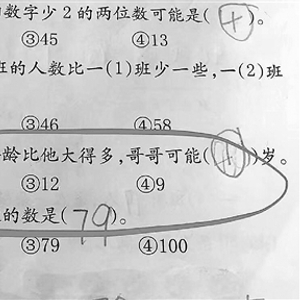 数字少2的两位数可能是( )。
③45 ④13
班的人数比一(1)班少一些,一(2)班
③46 ④58
龄比他大得多,哥哥可能( )岁。
③12 ④9
的数是(79)。
③79 ④100